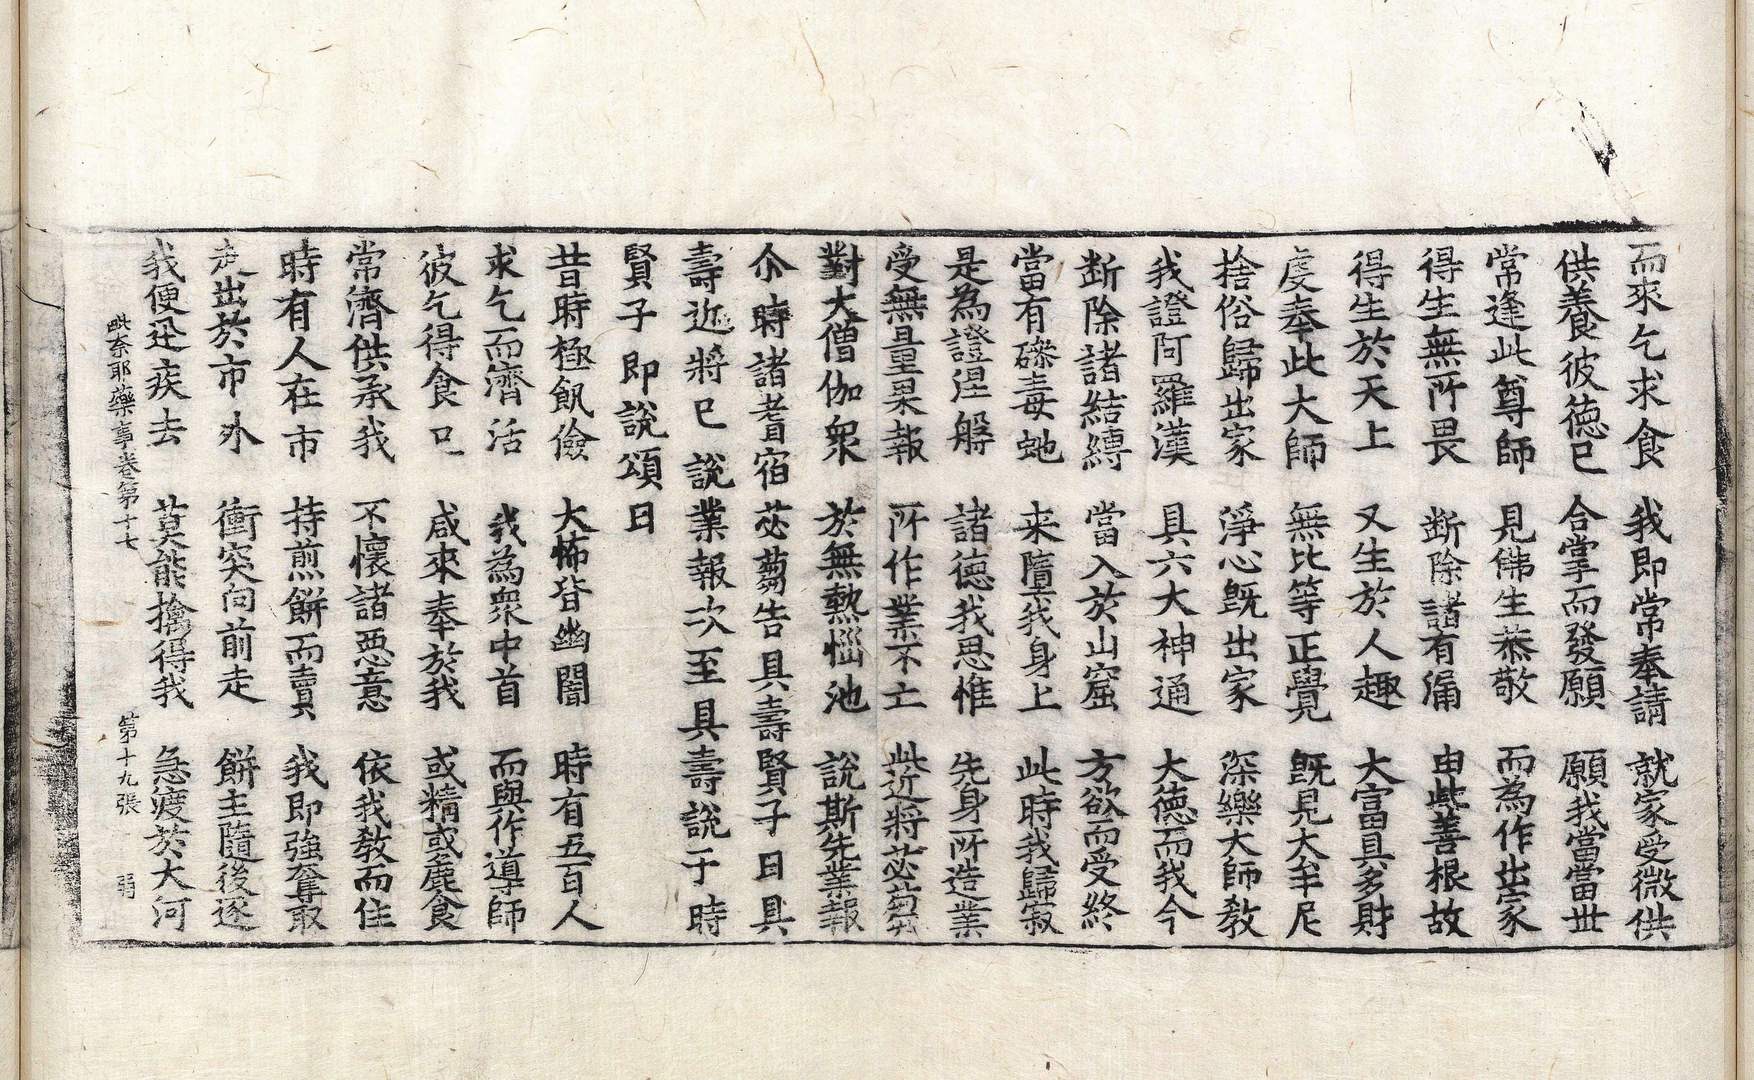 而來乞求食　我即常奉請　就家受微供
供養彼德已　合掌而發願　願我當當世
常逢此尊師　見佛生恭敬　而為作出家
得生無所畏　断除諸有漏　由此善根故
得生於天上　又生於人趣　大富具多財
虔奉此大師　無比等正覺　旣見大牟尼
捨俗歸出家　淨心旣出家　深樂大師教
我證阿羅漢　具六大神通　大德而我今
断除諸結縛　當入於山窟　方欲而受終
當有磣毒虵　来墮我身上　此時我歸寂
是為證涅槃　諸德我思惟　先身所造業
受無量果報　所作業不亡　此近將苾芻
對大僧伽衆　於無熱惱池　說斯先業報
尒時諸耆宿苾芻告具壽賢子曰具
壽近將已說業報次至具壽說于時
賢子即說頌曰
昔時極飢儉　大怖皆幽闇　時有五百人
求乞而濟活　我為衆中首　而與作導師
彼乞得食已　咸來奉於我　或精或麁食
常濟供承我　不懷諸惡意　依我教而住
時有人在市　持煎餅而賣　我即強奪取
走出於市外　衝突向前走　餅主隨後逐
我便迅疾去　莫能擒得我　急渡於大河
毗奈耶藥事卷第十七　第十九張　弱